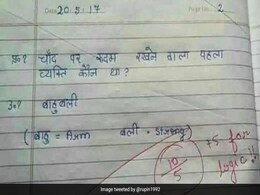 Date 20.5.17
Page No. 2
प्र०? चाँद पर कदम रखने वाला पहला
व्यक्ति कौन था?
उ०? बाहुबली
(बाहु = Arm बली = Strong)
10/5
+5 for
logic!!
Image tweeted by @rupin1992